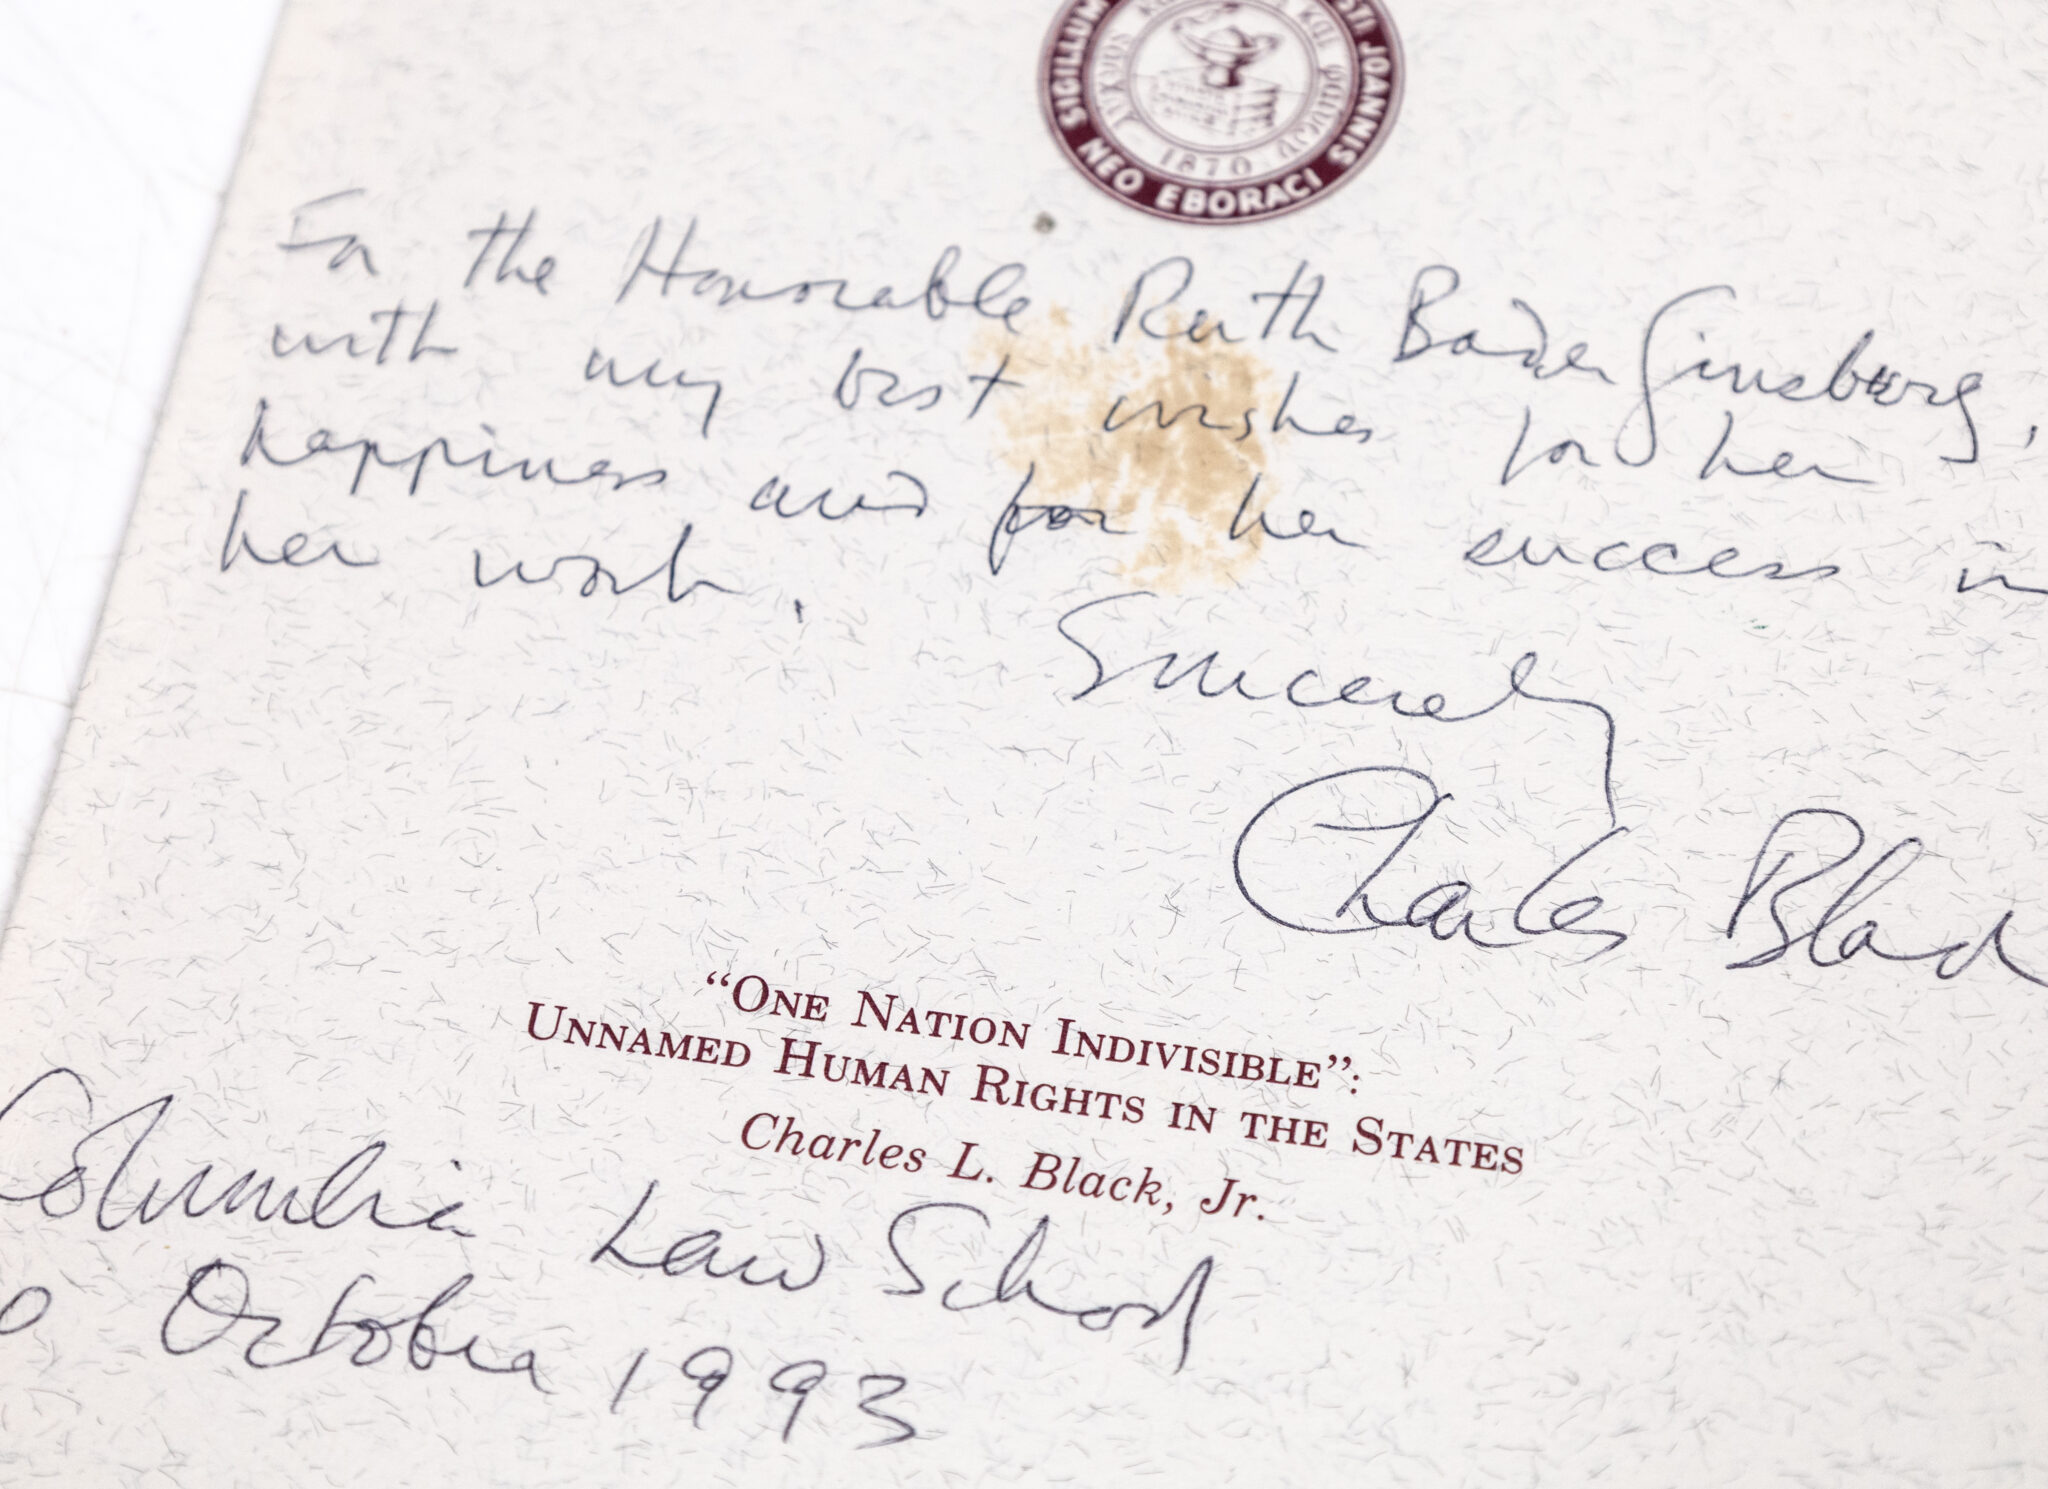 SIGILLUM
NEO EBORACI
JOANNIS
1870
For the Honorable Ruth Bader Ginsburg,
with my best wishes for her
happiness and for her success in
her work.
Sincerely
Charles Blac
“ONE NATION INDIVISIBLE”:
UNNAMED HUMAN RIGHTS IN THE STATES
Charles L. Black, Jr.
Columbia Law School
0 October 1993